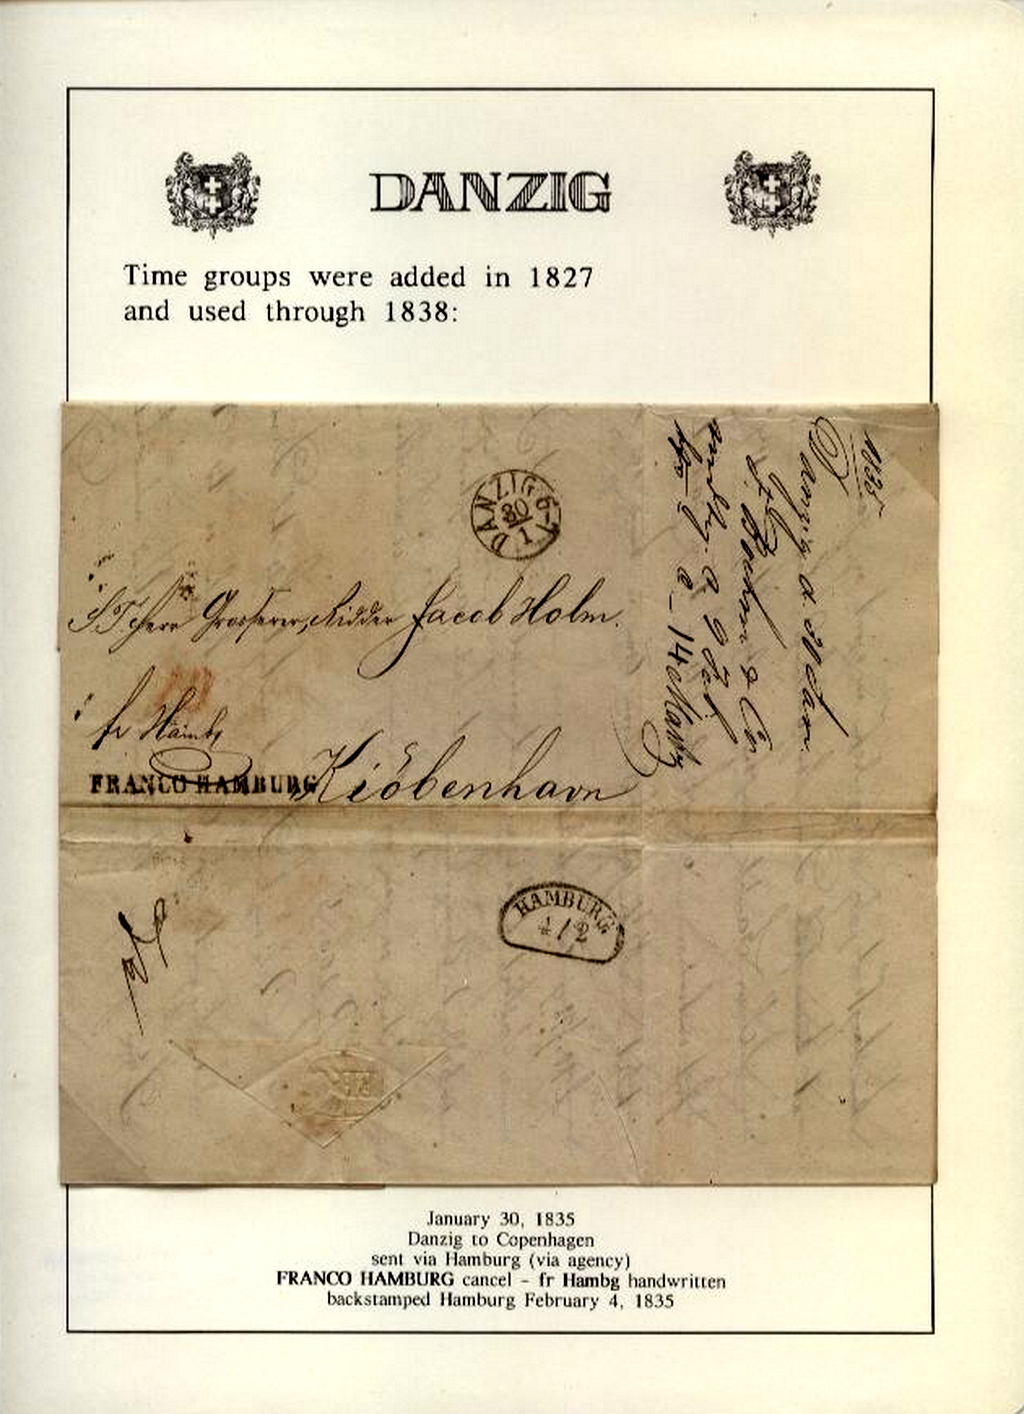 DANZIG
Time groups were added in 1827
and used through 1838:
DANZIG 6-7
30
1
Herr Grosserer, Ridder Jacob Holm.
fr Hambg
FRANCO HAMBURG
Kiöbenhavn
1835
Danzig d. 30 Jan.
& Co
HAMBURG
4/2
January 30, 1835
Danzig to Copenhagen
sent via Hamburg (via agency)
FRANCO HAMBURG cancel - fr Hambg handwritten
backstamped Hamburg February 4, 1835